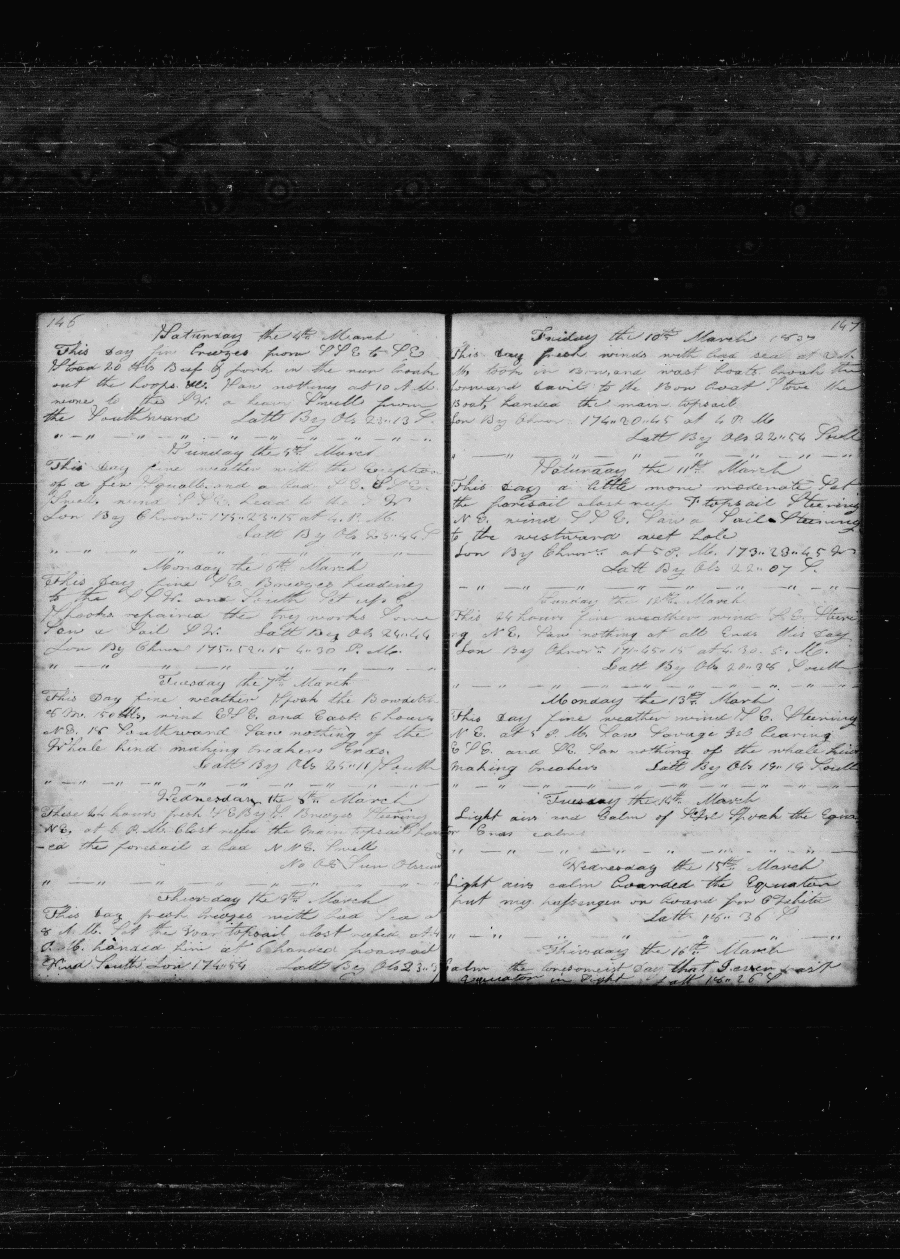 146
Saturday the 4th March
This day fine breezes from S S E to S E
Stoed 20 Bbls Beef & pork in the run broke
out the hoops &c. Saw nothing at 10 A M
none to the S W. a heavy Swell from
the Southward Latt By Obs 23"13 S.
Sunday the 5th March
This day fine weather with the exception
of a few Squalls and a bad S E
wind S S E. head to the S W
Lon By Chron 175"23"15 at 4. P. M.
Latt By Obs 23"44 S
Monday the 6th March
This day fine S E. Breezes heading
to the S S W. and South Set up 2
Shooks repaired the try works Some
Saw a Sail S W. Latt By Obs 24"44
Lon By Chron 175"52"15 4"30 P. M.
Tuesday the 7th March
This day fine weather Spoak the Bowditch
8 Mo. 150 bbls, wind E S E and Each 6 hours
N E. 18 Southward Saw nothing of the
Whale kind making breachers Ends.
Latt By Obs 25"11 South
Wednesday the 8th March
These 24 hours fresh S E By S Breezes Steering
N E. at 6 P. M. Clost reefed the main topsail
-ed the foresail a bad N N E. Swell
No Sun Observed
Thursday the 9th March
This day fresh breezes with bad Sea at
8 A. M. Set the topsail clost reefed at 4
P. M. handed him at 6 handed foresail
Wind South Lon 174"54 Latt By Obs 23"
147
Friday the 10th March 1837
This day fresh winds with bad sea at
M. took in Bow, and wast boats
forward davit to the Bow boat Stove the
Boat, handed the main topsail
Lon By Chron 174"20"45 at 4 P. M
Latt By Obs 22"54 South
Saturday the 11th March
This day a little more moderate Set
the foresail close reef T topsail Steering
N E. wind S S E. Saw a Sail Steering
to the westward wet hole
Lon By Chron at 5 P. M. 173"23"45 W
Latt By Obs 22"07 S.
Sunday the 12th March
This 24 hours fine weather wind S. E. Steeri
ng N E. Saw nothing at all Ends this day
Lon By Chron 171"45"15 at 4"30. P. M.
Latt By Obs 20"38 South
Monday the 13th March
This day fine weather wind S E. Steering
N E. at 5 P. M. Saw Savage Isd bearing
E S E. and S E. Saw nothing of the whale kind
making breachers Latt By Obs 19"14 South
Tuesday the 14th March
Light airs and Calm of Isd Spoak the Equa
tor Ends calm
Wednesday the 15th March
Light airs calm boarded the Equator
put my passenger on board for Otiheita
Latt 18"36 S
Thursday the 16th March
Calm the lonesomeist day that I ever past
Equator in Sight Latt 18"26 S